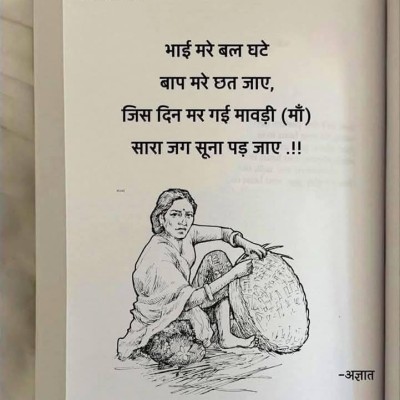 भाई मरे बल घटे
बाप मरे छत जाए,
जिस दिन मर गई मावड़ी (माँ)
सारा जग सूना पड़ जाए .!!
-अज्ञात